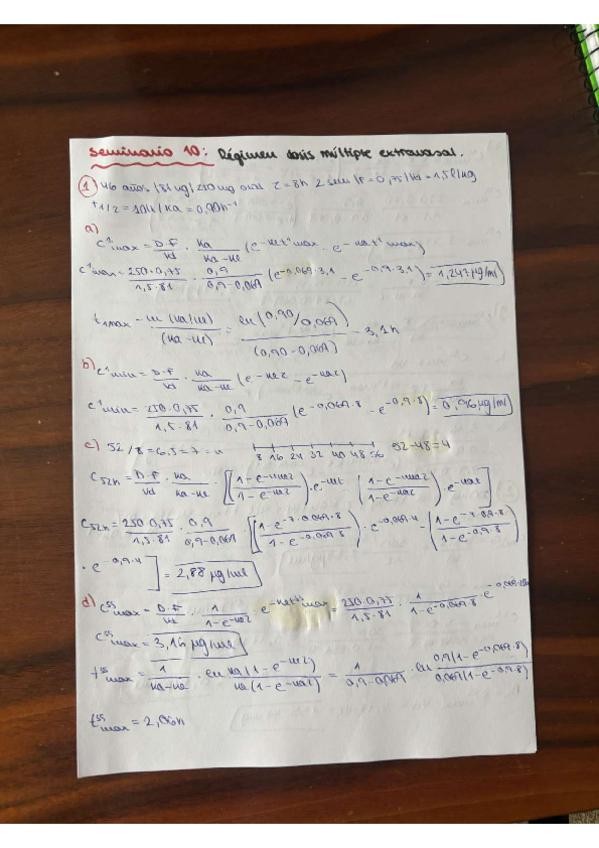 Seminario 10: Régimen dosis múltiple extravasal.
1 46 años | 81 kg | 250 mg oral τ = 8h 2 sem | F = 0,75 | Vd = 1,5 l/kg
t 1/2 = 10h / Ka = 0,90h⁻¹
a)
C¹max = D·F/Vd · Ka/Ka-Ke (e^-Ke t¹max - e^-Ka t¹max)
C¹max = 250·0,75/1,5·81 · 0,9/0,9-0,069 (e^-0,069·3,1 - e^-0,9·3,1) = 1,247 µg/ml
t1max = ln (Ka/Ke)/(Ka-Ke) = ln (0,90/0,069)/(0,90-0,069) = 3,1h
b)
C¹min = D·F/Vd · Ka/Ka-Ke (e^-Keτ - e^-Kaτ)
C¹min = 250·0,75/1,5·81 · 0,9/0,9-0,069 (e^-0,069·8 - e^-0,9·8) = 0,96 µg/ml
c) 52/8 = 6,5 = 7 = n 8 16 24 32 40 48 56 52-48 = 4
C52h = D·F/Vd · Ka/Ka-Ke · [(1-e^-nKeτ/1-e^-Keτ)·e^-Ket - (1-e^-nKaτ/1-e^-Kaτ) · e^-Kat]
C52h = 250·0,75/1,5·81 · 0,9/0,9-0,069 [(1-e^-7·0,069·8/1-e^-0,069·8) · e^-0,069·4 - (1-e^-7·0,9·8/1-e^-0,9·8)
· e^-0,9·4] = 2,88 µg/ml
d) C^ss max = D·F/Vd · 1/1-e^-Keτ · e^-Ke t^ss max = 250·0,75/1,5·81 · 1/1-e^-0,069·8 · e^-0,069
C^ss max = 3,16 µg/ml
t^ss max = 1/Ka-Ke · ln Ka(1-e^-Keτ)/Ke(1-e^-Kaτ) = 1/0,9-0,069 · ln 0,9(1-e^-0,069·8)/0,069(1-e^-0,9·8)
t^ss max = 2,06h